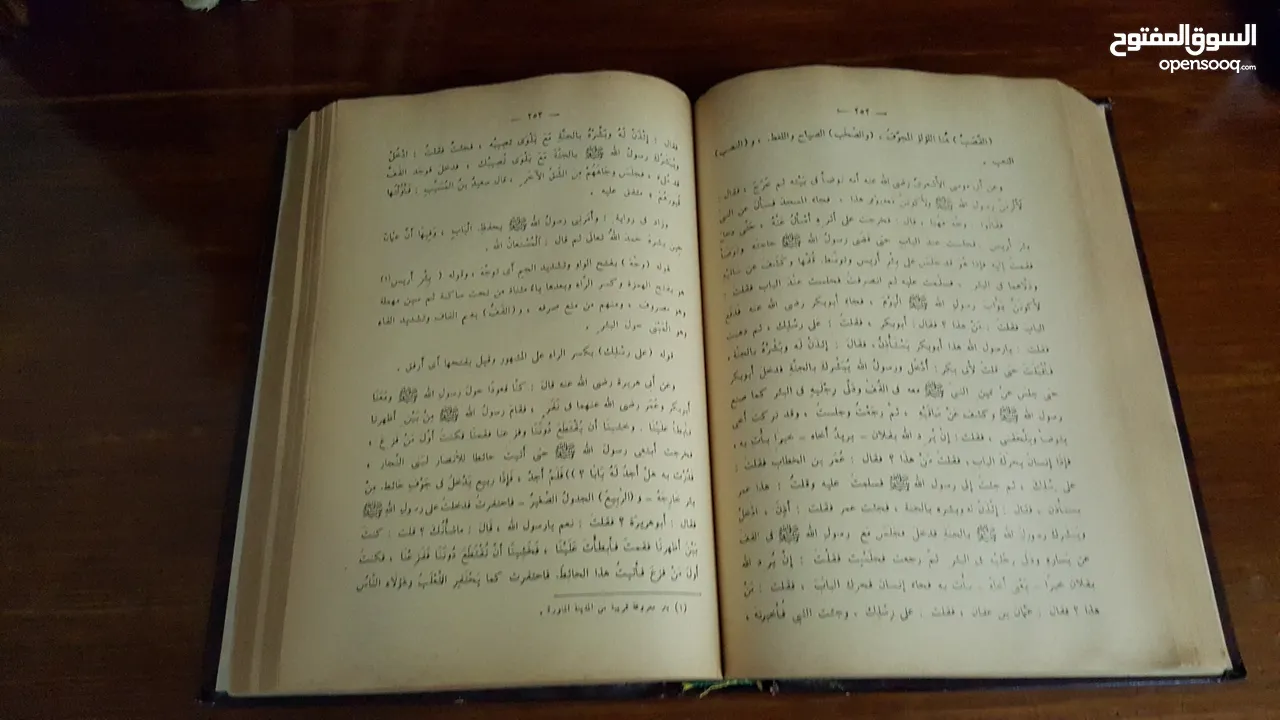 السوق المفتوح
opensooq.com
— ٢٥٢ —
(القَصَبُ) هُنَا اللؤلؤ المجوَّفُ ، (والصَّخَب) الصياح واللغط . و (النصب)
التعب .
وعن أبى موسى الأشعرىِّ رضى الله عنه أنه توضأ فى بيته ثم خرَجَ ، فقال:
لألزَمنَّ رسول الله ﷺ ولأكوننَّ معه يومى هذا ، فجاء المسجدَ فسأل عن النبى
فقالوا : وجَّهَ هٰهُنا ، قال : فخرجت على أثره أسألُ عَنْهُ ، حَتَّى دخل
بئر أريس . فجلست عند الباب حتى قضى رسولُ الله ﷺ حاجته وتوضأ
فقمتُ إليه فإذا هُوَ قد جلس على بئر أريس وتوسَّطَ قُفَّها وكَشَفَ عن ساقَيْهِ
ودلَّاهما فى البئر . فسلمت عليه ثم انصرفتُ فجلست عندَ الباب فقلتُ :
لأكونَنَّ بوَّابَ رسولِ الله ﷺ اليَوْمَ ، فجاء أبوبكر رضى الله عنه فدَفَعَ
الباب فقلتُ : مَنْ هذا ؟ فقال : أبوبكر ، فقلتُ : على رِسْلِكَ ، ثم ذهبتُ
فقلت : يارسول الله هذا أبوبكر يَسْتَأْذِنُ، فقالَ : ائْذَنْ لَهُ وبَشِّرْهُ بالجنَّة،
فأقبلتُ حتى قلتُ لأبى بكر : اُدْخُلْ ورسولُ الله يُبَشِّرُكَ بالجنةِ فدخل أبوبكر
حتى جلس عن يمين النبى ﷺ معه فى القُفِّ ودلَّى رِجْلَيهِ فى البئر كما صنع
رسول الله ﷺ وكشف عَنْ سَاقَيْهِ ، ثم رَجَعْتُ وجلستُ ، وقد تركت أخى
يتوضأ ويلحقنى ، فقلت : إنْ يُرِد الله بفلان — يريدُ أخاه — خيرا يأت به ،
فإذا إنسانٌ يحرك الباب ، فقلتُ مَنْ هذا ؟ فقال : عُمَر بن الخطاب فقلتُ :
على رِسْلِكَ ، ثم جئت إلى رسول الله ﷺ فسلمت عليه وقلتُ : هذا عمر
يستأذن . فقال : ائْذَنْ له وبشره بالجنة ، فجئت عمر فقلت : أذِنَ ، ادْخُلْ
ويبشرك رسول الله ﷺ بالجنة فدخل فجلس مَعَ رسولِ الله ﷺ فى القفِّ
عن يسارِهِ ودلَّى رِجْلَيْه فى البئر ثم رجعت فجلَسْتُ فقلتُ : إنْ يُرِدِ اللهُ
بفلان خيرًا — يَعْنِى أخاهُ — يأت به فجاء إنسان فحرك البابَ ، فقلتُ : مَنْ
هذا ؟ فقال : عثمان بن عفان ، فقلتُ . على رِسْلِكَ ، وجئت النبى فأخبرته ،
— ٢٥٣ —
فقالَ : ائْذَنْ لَهُ وبَشِّرْهُ بالجنَّةِ مَعَ بَلْوَى تُصيبُه ، فجئتُ فقلتُ : ادْخُلْ
ويُبَشِّرُكَ رسولُ الله ﷺ بالجنَّةِ مَعَ بَلْوَى تُصيبُكَ ، فدخل فوجد القفَّ
قد مُلىء ، فجلسَ وِجَاهَهُمْ مِنَ الشِّقِّ الآخَرِ . قال سعيدُ بنُ المُسَيِّبِ : فأوَّلتُها
قبورَهُمْ ، متفق عليه .
وزاد فى رواية : وأمَرَنِى رسولُ الله ﷺ بحِفْظِ الْبابِ ، وَفِيهَا أنَّ عثمانَ
حِينَ بَشَّرَهُ حَمِدَ اللهَ تعالَى ثم قالَ : اللهُ الْمُسْتَعَانُ .
قوله (وجَّهَ) بفتح الواو وتشديد الجيم أى توجَّهَ ، وقوله ( بِئْرِ أريس(١)
هو بفتح الهمزة وكسر الرَّاء وبعدها ياء مثناة من تحت ساكنة ثم سين مهملة
وهو مصروف ، ومنهم من منع صرفه ، و (القُفُّ) بضم القاف وتشديد الفاء
وهو الْمَبْنِى حول البئرِ .
قوله (على رِسْلِكَ) بكسر الراء على المشهور وقيل بفتحها أى ارفق .
وعن أبى هريرة رضى الله عنه قال : كنَّا قعودًا حولَ رسولِ الله ﷺ ومَعَنَا
أبوبكر وعُمَر رضى الله عنهما فى نَفَرٍ ، فقامَ رسولُ الله ﷺ مِنْ بَيْنِ أظهرنا
فأبطأ علَيْنَا . وخَشِينَا أن يُقْتَطَعَ دُونَنَا وفزِعنا فقمنَا فكنتُ أوَّل مَنْ فزعَ ،
فخرجت أبتغى رسولَ الله ﷺ حتى أتيت حائطا للأنصار لبنى النَّجار ،
فدُرْتُ به هلْ أجدُ لَهُ بَابًا ؟ فَلَمْ أجدْ ، فإذا ربيع يَدْخُلُ فى جوْفِ حائط. مِنْ
بئرٍ خارجَهُ — و (الربيعُ) الجدولُ الصَّغيرُ — فاحتفزتُ فدخلتُ على رسول الله ﷺ
فقال : أبوهريرة ؟ فقلتُ : نعم يارسول الله ، قال : ماشأنُكَ ؟ قلت : كنتَ
بَيْنَ أظهرنا فقمتَ فأبطأتَ عَلَيْنَا ، فخَشِينَا أنْ تُقْتَطَعَ دُونَنَا ففَزِعْنا ، فكنتُ
أولَ مَنْ فَزِعَ فأتيتُ هذا الحائطَ . فاحتفزت كما يحتفز الثَّعْلَبُ وهؤلاء النَّاسُ
(١) بئر معروفة قريبة من المدينة المنورة .